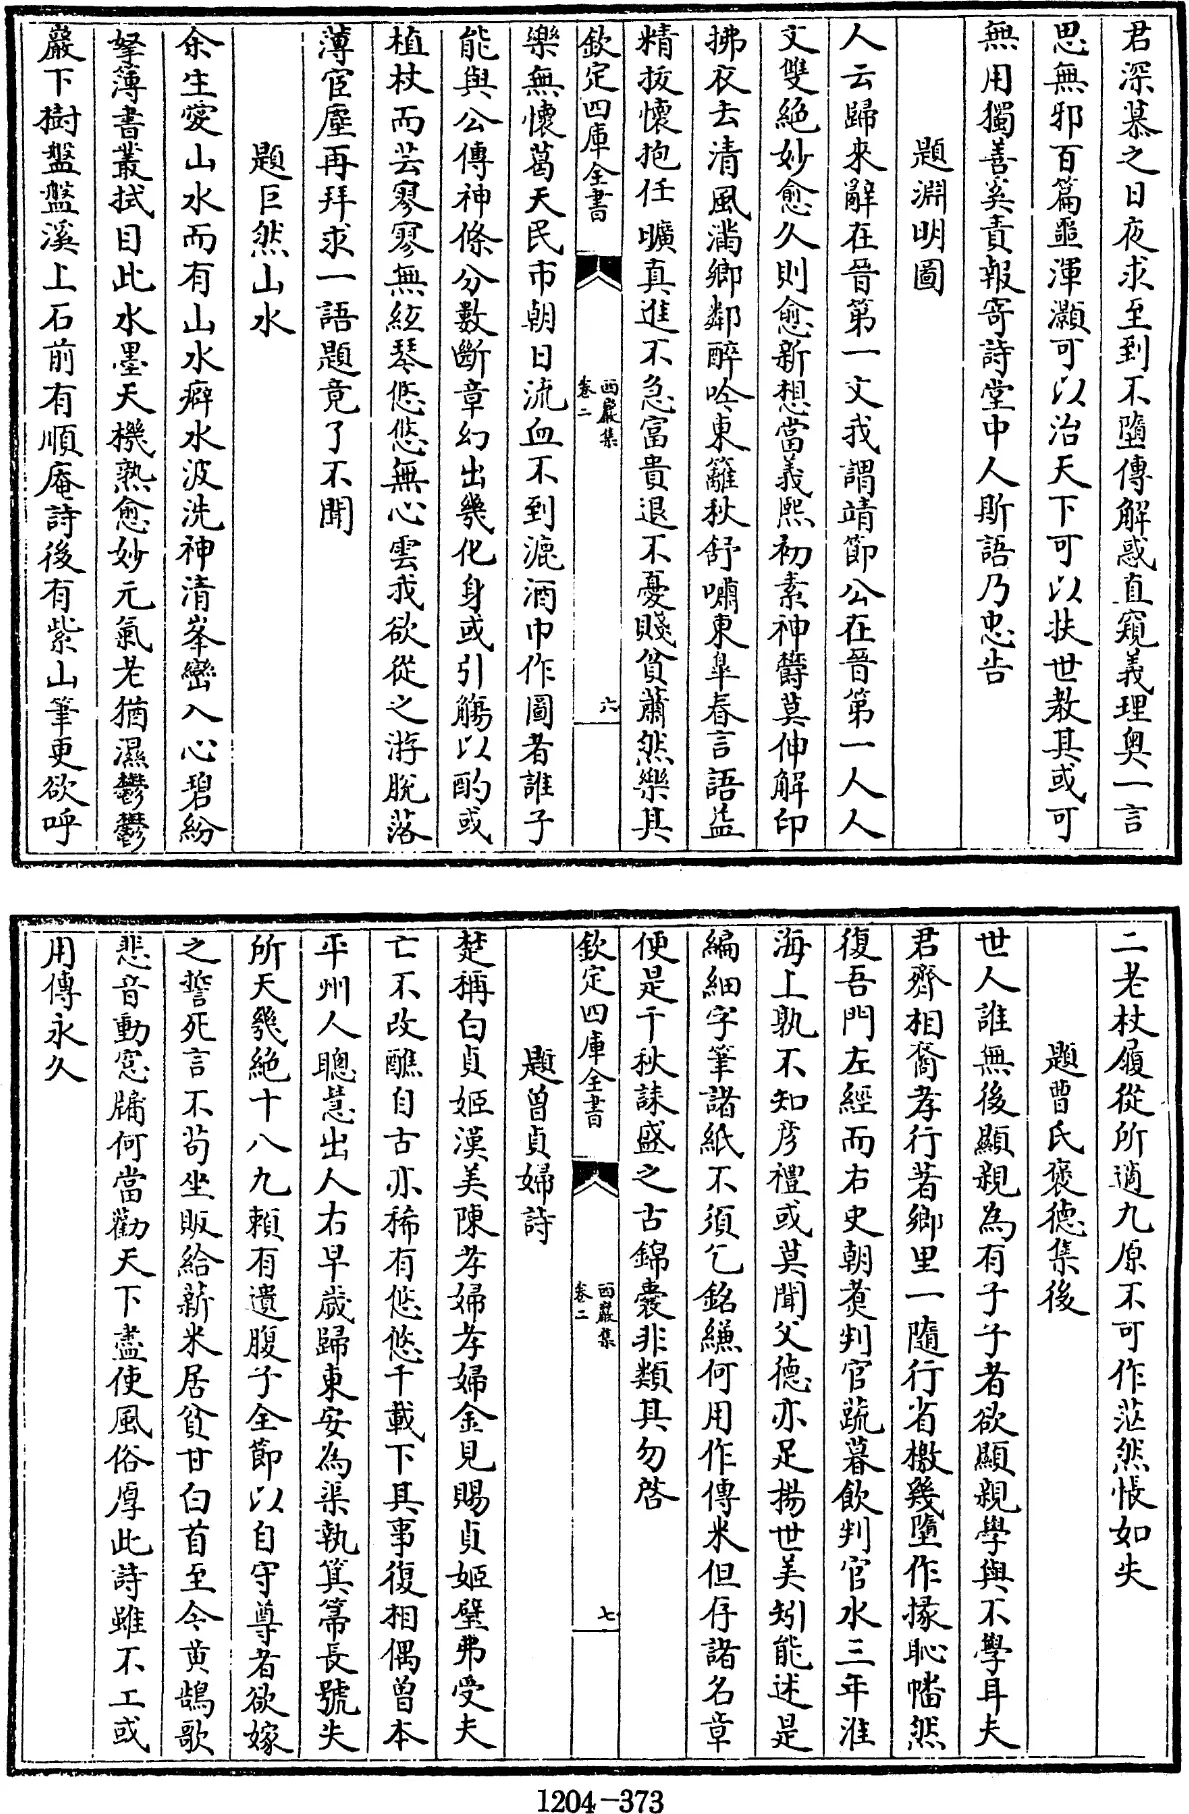 君深慕之日夜求至到不墮傳解惑直窺義理奥一言
思無邪百篇噩渾灝可以治天下可以扶世教其或可
無用獨善奚責報寄詩堂中人斯語乃忠告
題淵明圖
人云歸來辭在晉第一文我謂靖節公在晉第一人人
文雙絶妙愈久則愈新想當義熙初素神欝莫伸解印
拂衣去清風滿鄉鄰醉吟東籬秋舒嘯東臯春言語益
精抜懐抱任曠真進不急富貴退不憂賤貧蕭然樂其
欽定四庫全書
西巖集
卷二
六
樂無懐葛天民市朝日流血不到漉酒巾作圖者誰子
能與公傳神條分數斷章幻出幾化身或引觴以酌或
植杖而芸寥寥無絃琴悠悠無心雲我欲從之游脫落
薄宦塵再拜求一語題竟了不聞
題巨然山水
余生愛山水而有山水癖水波洗神清峯巒入心碧紛
拏簿書叢拭目此水墨天機熟愈妙元氣老猶濕鬱鬱
巖下樹盤盤溪上石前有順庵詩後有紫山筆更欲呼
二老杖履從所適九原不可作茫然悵如失
題曹氏褒德集後
世人誰無後顯親為有子子者欲顯親學與不學耳夫
君齊相裔孝行著鄉里一隨行省檄幾墮作掾恥幡然
復吾門左經而右史朝煮判官蔬暮飲判官水三年淮
海上孰不知彦禮或莫聞父德亦足揚世美矧能述是
編細字筆諸紙不須乞銘縑何用作傳米但存諸名章
便是千秋誄盛之古錦囊非類其勿啓
欽定四庫全書
西巖集
卷二
七
題曽貞婦詩
楚稱白貞姬漢美陳孝婦孝婦金見賜貞姬璧弗受夫
亡不改醮自古亦稀有悠悠千載下其事復相偶曽本
平州人聰慧出人右早歲歸東安為渠執箕箒長號失
所天幾絶十八九頼有遺腹子全節以自守尊者欲嫁
之誓死言不茍坐販給薪米居貧甘白首至今黄鵠歌
悲音動窓牖何當勸天下盡使風俗厚此詩雖不工或
用傳永久
1204-373